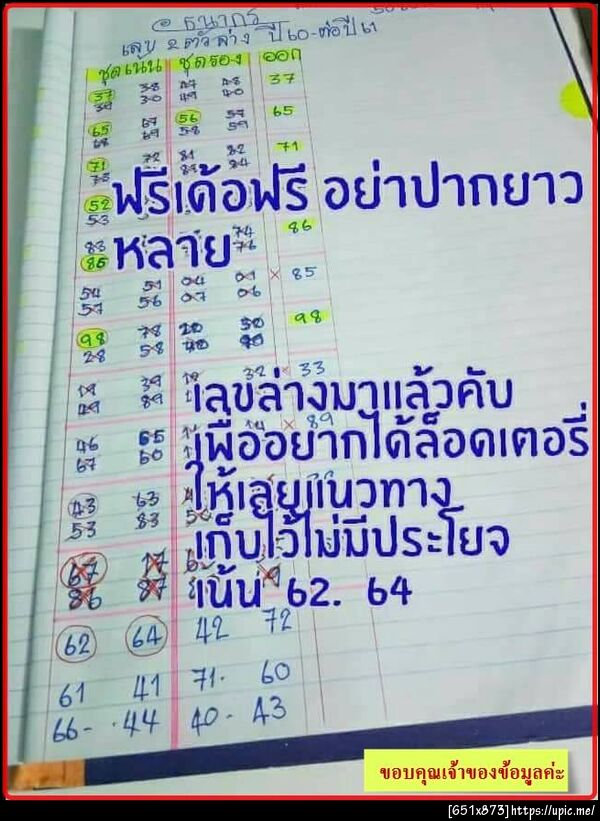 ธนากร
เลข 2 ตัวล่าง ปี 60-ต่อปี 61
ชุดเน้น ชุดรอง ออก
37 38 47 48 37
39 30 49 40
65 67 56 57 65
68 69 58 59
71 72 81 82 71
84
52
53
ฟรีเด้อฟรี อย่าปากยาว
หลาย
83 74 86
85 76
54 51 04 01 × 85
57 56 07 06
98 78 20 50 98
28 58 40
19 39 32 × 33
49 89
เลขล่างมาแล้วคับ
46 65 14 × 89
67 60
เพื่ออยากได้ล็อดเตอรี่
43 63
53 83
ให้เลยแนวทาง
เก็บไว้ไม่มีประโยจ
67 17
86 87
เน้น 62. 64
62 64 42 72
61 41 71. 60
66- .44 40- 43
ขอบคุณเจ้าของข้อมูลค่ะ
[651x873]https://upic.me/